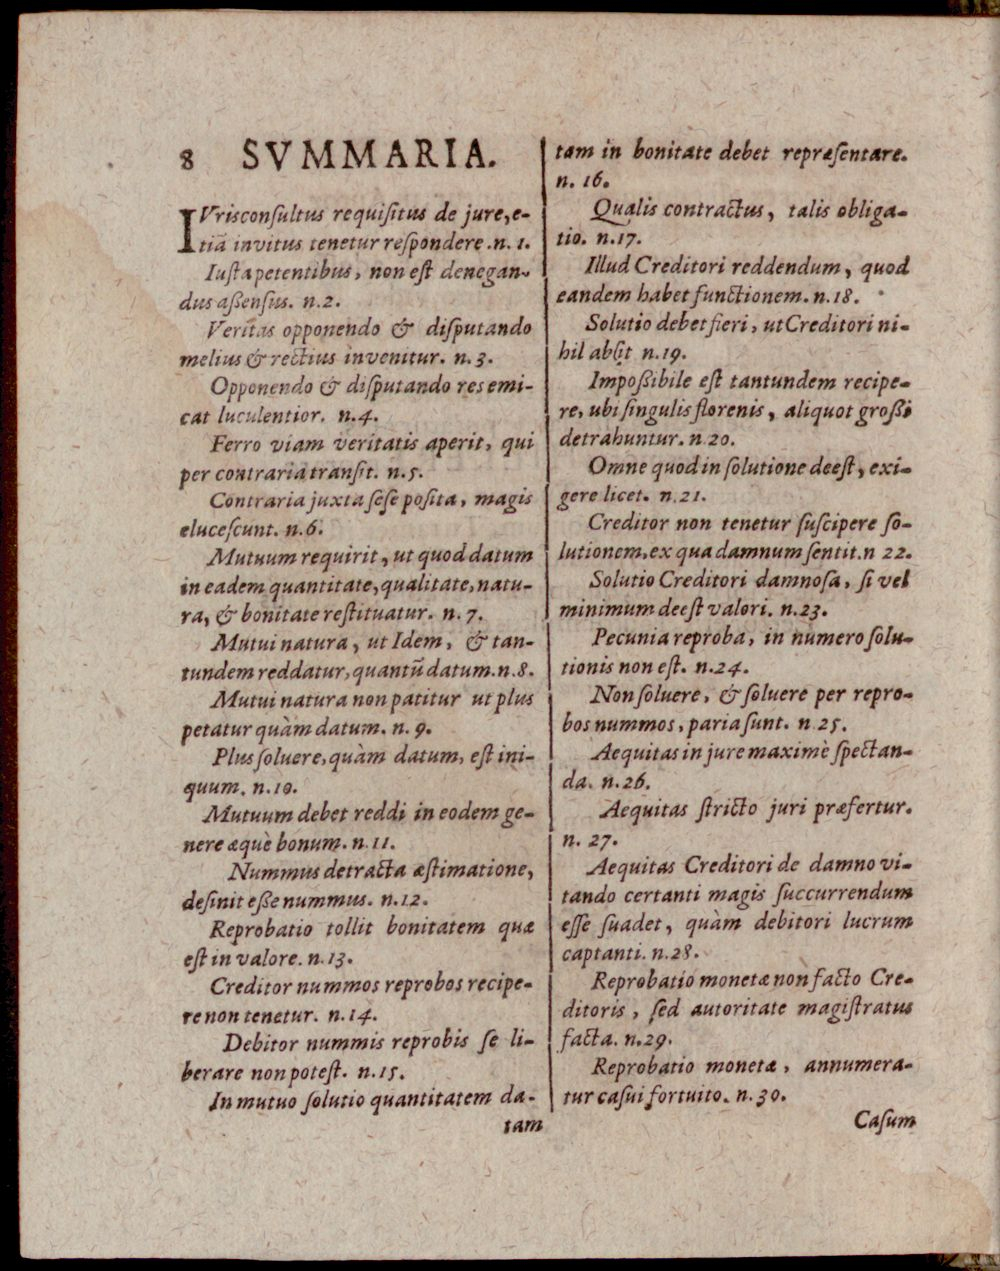 8 SVMMARIA.
IVrisconſultus requiſitus de jure, e-
tiã invitus tenetur reſpondere. n. 1.
Iuſta petentibus, non eſt denegan-
dus aßenſus. n. 2.
Veritas opponendo & diſputando
melius & rectius invenitur. n. 3.
Opponendo & diſputando res emi-
cat luculentior. n. 4.
Ferro viam veritatis aperit, qui
per contraria tranſit. n. 5.
Contraria juxta ſeſe poſita, magis
eluceſcunt. n. 6.
Mutuum requirit, ut quod datum
in eadem quantitate, qualitate, natu-
ra, & bonitate reſtituatur. n. 7.
Mutui natura, ut Idem, & tan-
tundem reddatur, quantũ datum. n. 8.
Mutui natura non patitur ut plus
petatur quàm datum. n. 9.
Plus ſoluere, quàm datum, eſt ini-
quum. n. 10.
Mutuum debet reddi in eodem ge-
nere æquè bonum. n. 11.
Nummus detracta æſtimatione,
deſinit eße nummus. n. 12.
Reprobatio tollit bonitatem quæ
eſt in valore. n. 13.
Creditor nummos reprobos recipe-
re non tenetur. n. 14.
Debitor nummis reprobis ſe li-
berare non poteſt. n. 15.
In mutuo ſolutio quantitatem da-
tam
tam in bonitate debet repræſentare.
n. 16.
Qualis contractus, talis obliga-
tio. n. 17.
Illud Creditori reddendum, quod
eandem habet functionem. n. 18.
Solutio debet fieri, ut Creditori ni-
hil abſit n. 19.
Impoßibile eſt tantundem recipe-
re, ubi ſingulis florenis, aliquot großi
detrahuntur. n 20.
Omne quod in ſolutione deeſt, exi-
gere licet. n. 21.
Creditor non tenetur ſuſcipere ſo-
lutionem, ex qua damnum ſentit. n 22.
Solutio Creditori damnoſa, ſi vel
minimum deeſt valori. n. 23.
Pecunia reproba, in numero ſolu-
tionis non eſt. n. 24.
Non ſoluere, & ſoluere per repro-
bos nummos, paria ſunt. n 25.
Aequitas in jure maximè ſpectan-
da. n. 26.
Aequitas ſtricto juri præfertur.
n. 27.
Aequitas Creditori de damno vi-
tando certanti magis ſuccurrendum
eſſe ſuadet, quàm debitori lucrum
captanti. n. 28.
Reprobatio monetæ non facto Cre-
ditoris, ſed autoritate magiſtratus
facta. n. 29.
Reprobatio monetæ, annumera-
tur caſui fortuito. n. 30.
Caſum